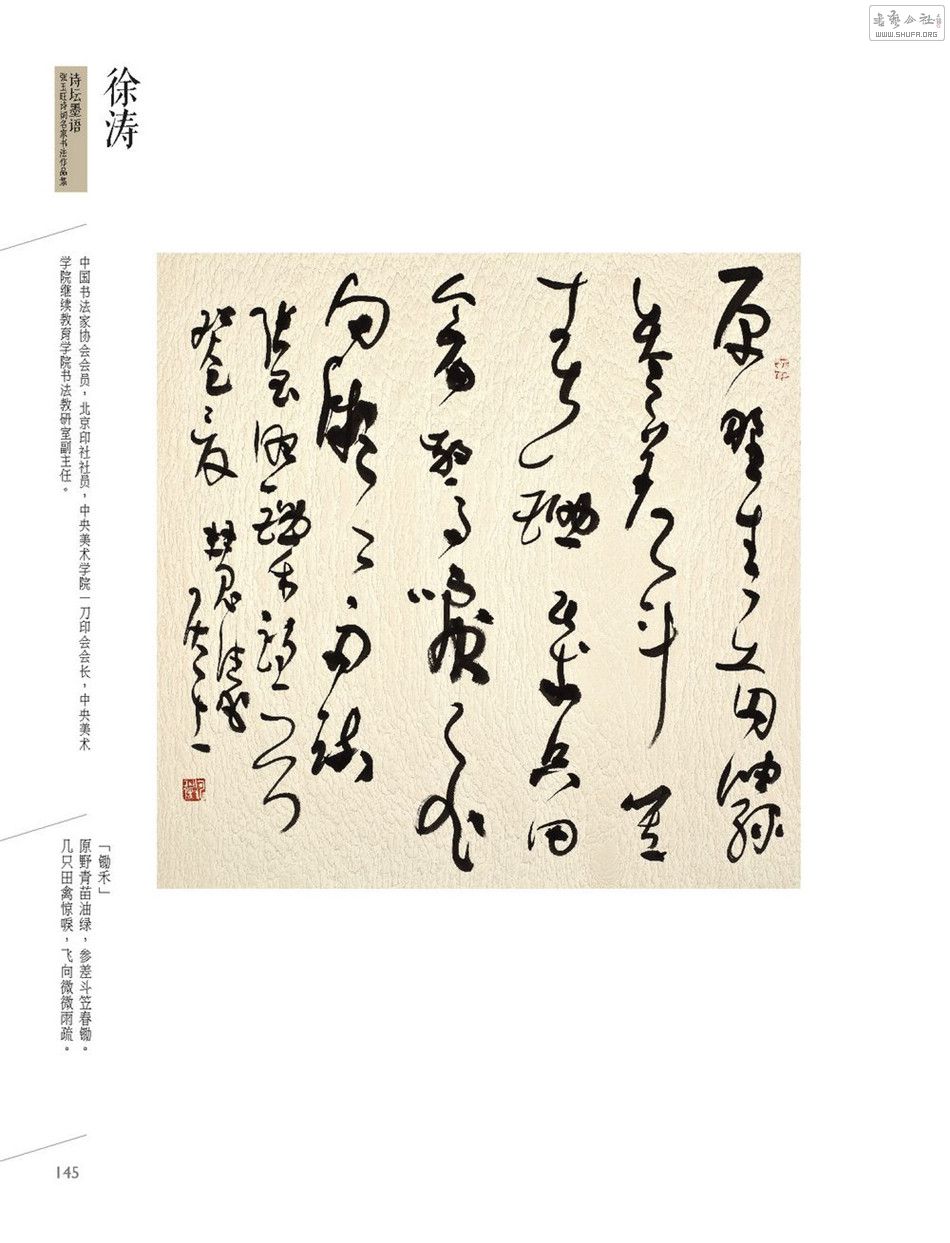 書藝公社
WWW.SHUFA.ORG
徐涛
诗坛墨语
张玉旺诗词名家书法作品集
中国书法家协会会员，北京印社社员，中央美术学院一刀印会会长，中央美术
学院继续教育学院书法教研室副主任。
原野青苗油绿
参差斗笠
春锄几只田
禽惊唳飞
向微微雨疏
张玉旺锄禾诗一首
癸巳之夏
「锄禾」
原野青苗油绿，参差斗笠春锄。
几只田禽惊唳，飞向微微雨疏。
145